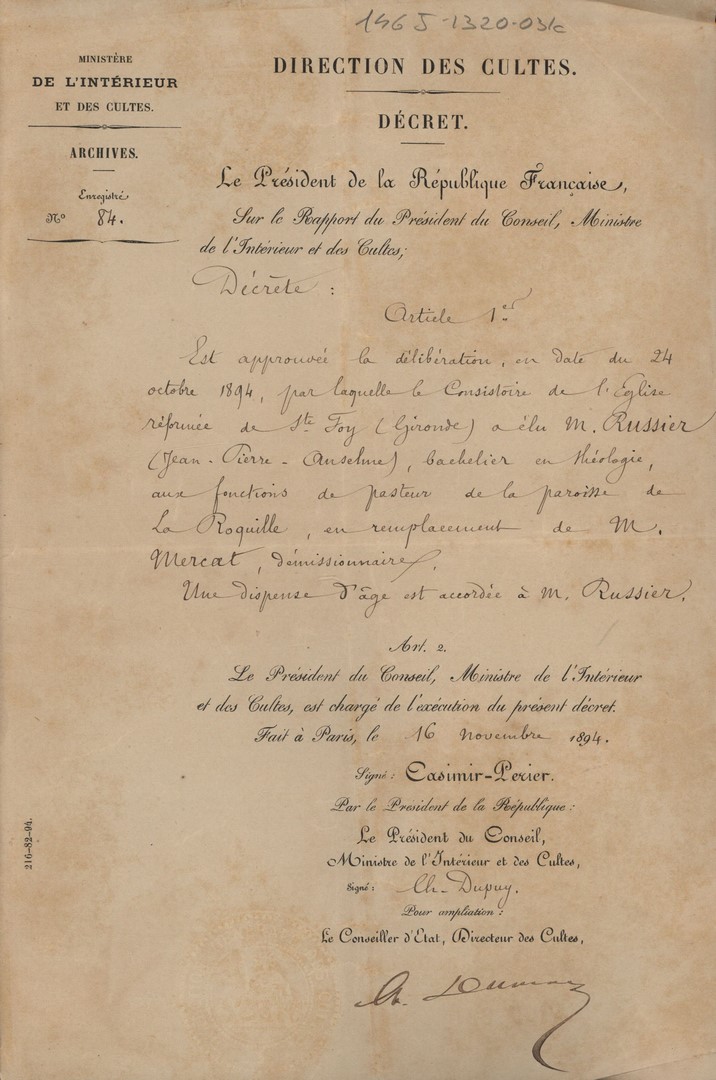 146 J-1320-031c
MINISTÈRE
DE L'INTÉRIEUR
ET DES CULTES.
ARCHIVES.
Enregistré
N° 84.
DIRECTION DES CULTES.
DÉCRET.
Le Président de la République Française,
Sur le Rapport du Président du Conseil, Ministre
de l'Intérieur et des Cultes;
Décrète :
Article 1er
Est approuvée la délibération, en date du 24
octobre 1894, par laquelle le Consistoire de l'Eglise
réformée de Ste Foy (Gironde) a élu M. Russier
(Jean-Pierre-Anselme), bachelier en théologie,
aux fonctions de pasteur de la paroisse de
La Roquille, en remplacement de M.
Mercat, démissionnaire.
Une dispense d'âge est accordée à M. Russier.
Art. 2.
Le Président du Conseil, Ministre de l'Intérieur
et des Cultes, est chargé de l'exécution du présent décret.
Fait à Paris, le 16 novembre 1894.
Signé: Casimir-Perier.
Par le Président de la République:
Le Président du Conseil,
Ministre de l'Intérieur et des Cultes,
Signé: Ch. Dupuy.
Pour ampliation:
Le Conseiller d'État, Directeur des Cultes,
216-82-94.